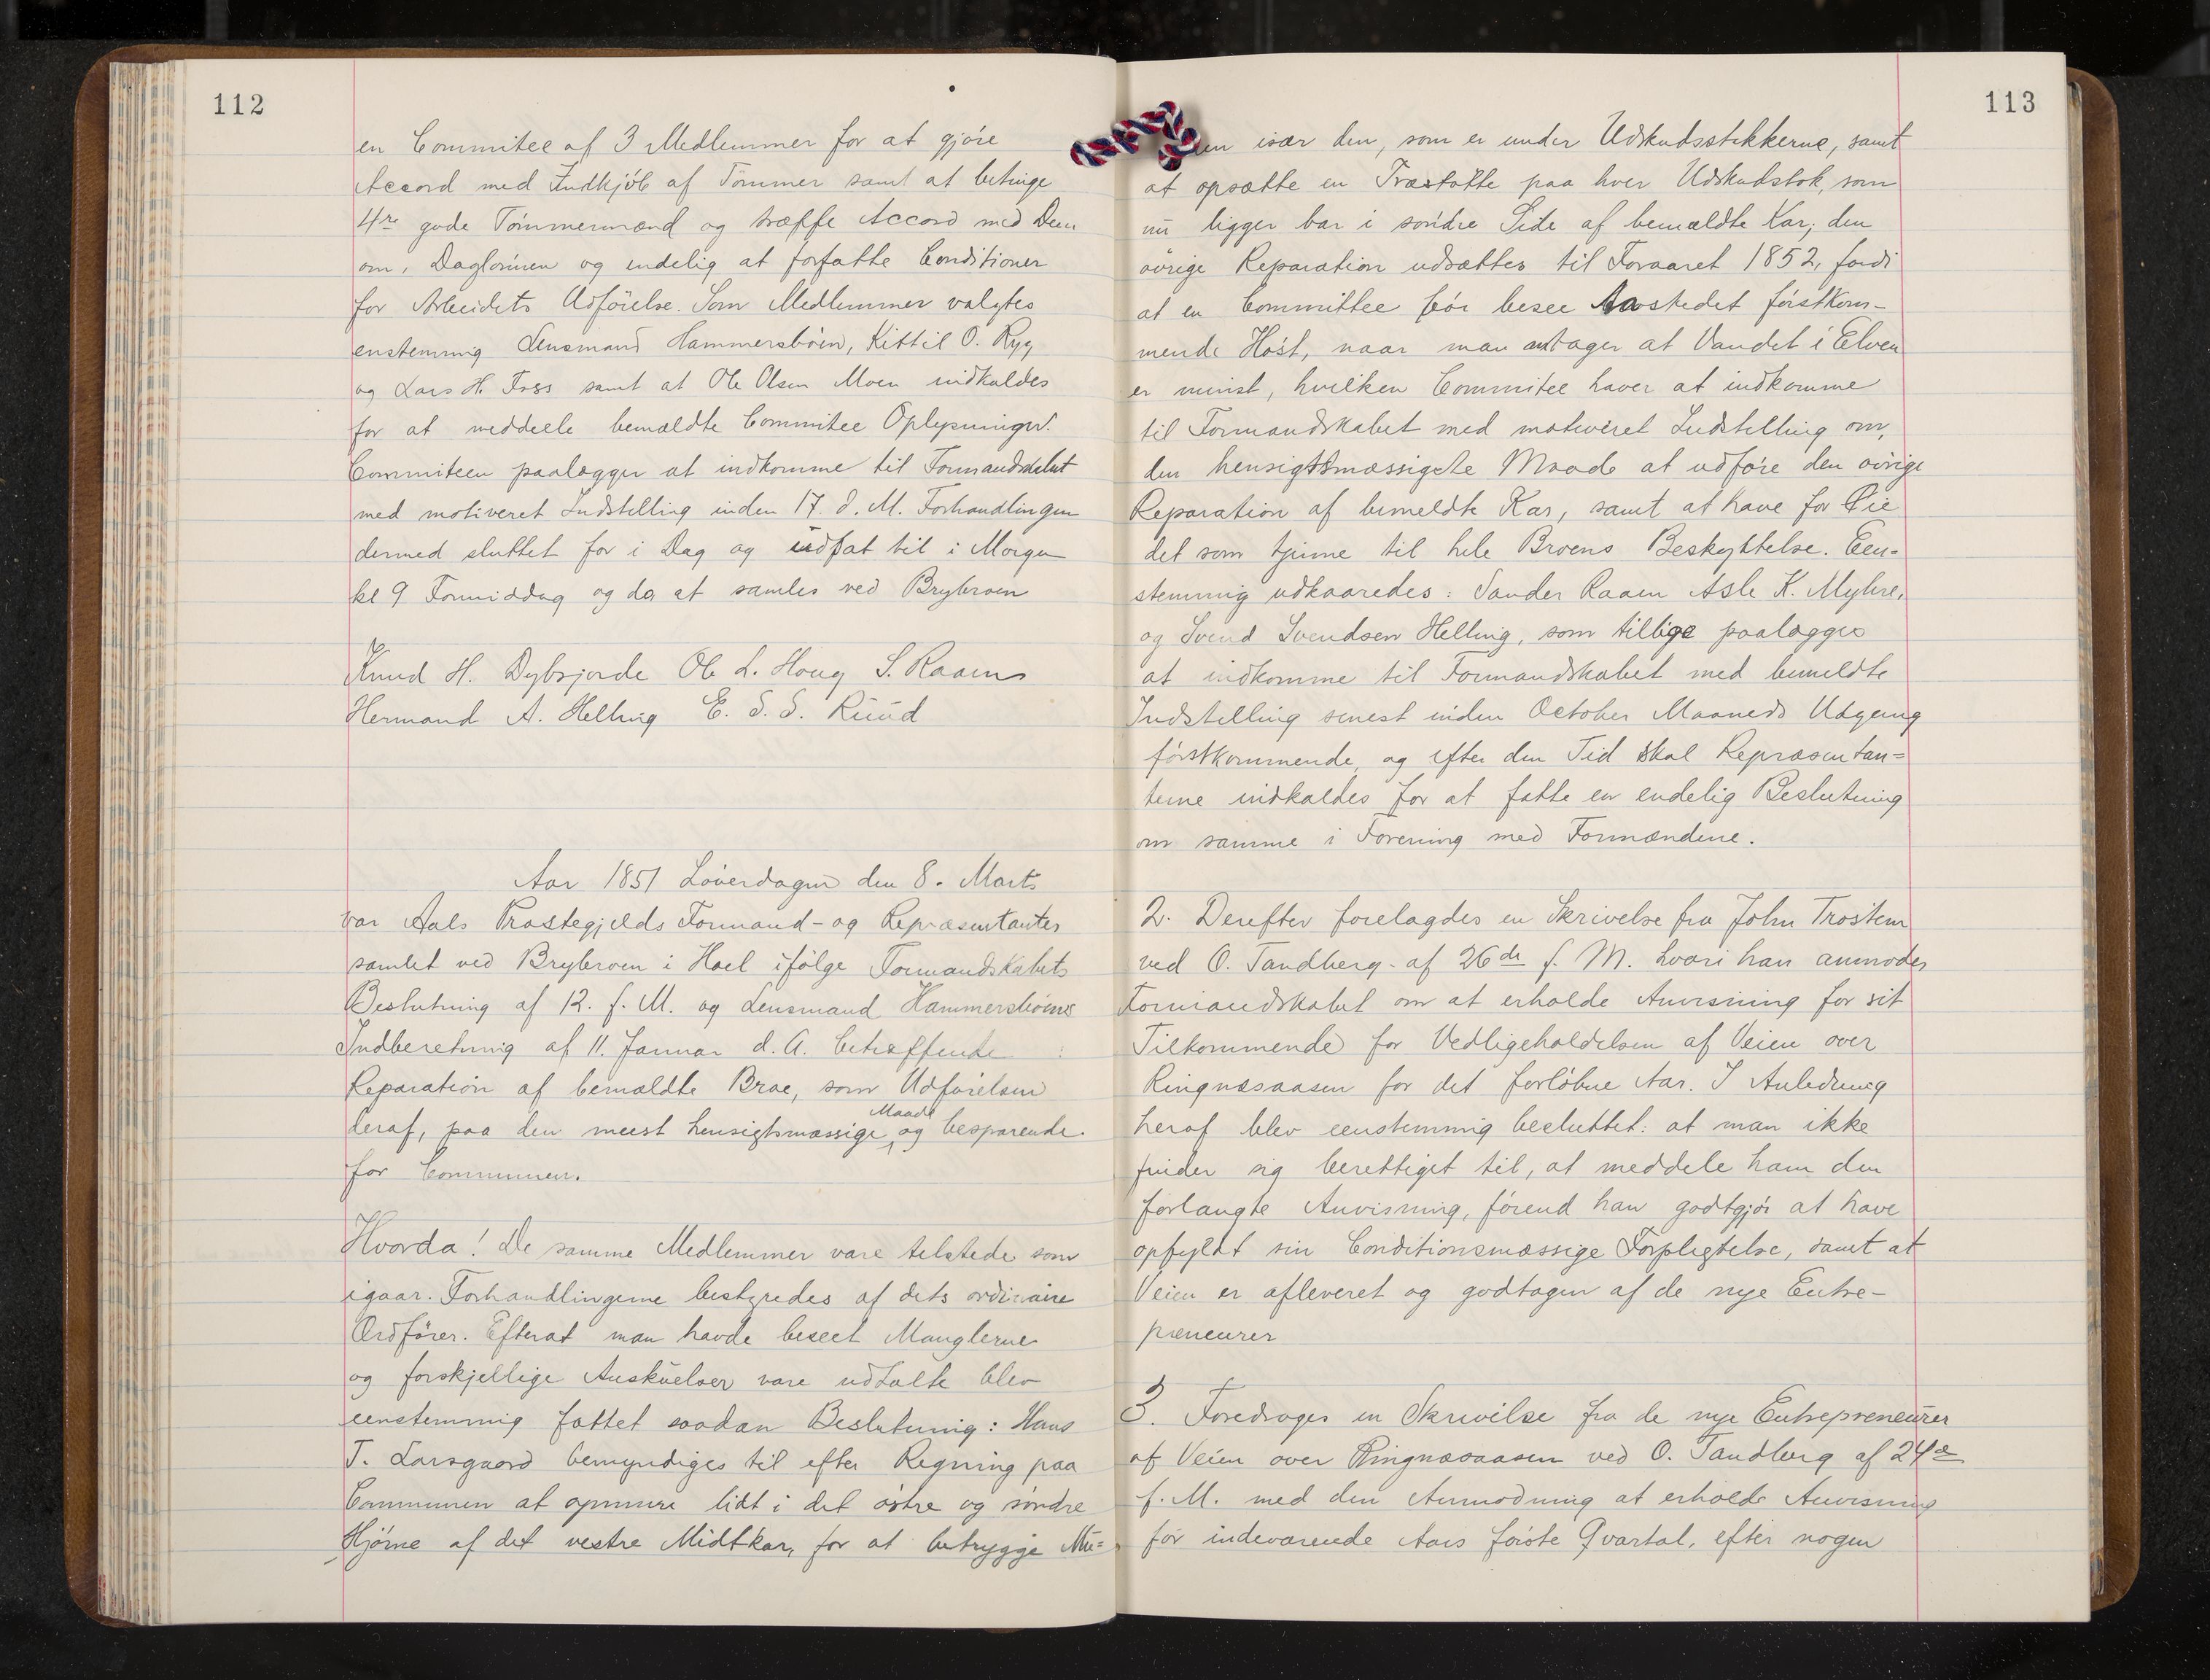 112
en Commitee af 3 Medlemmer for at gjöre
Accord med Indkjöb af Tömmer samt at betinge
4re gode Tömmermænd og træffe Accord med Dem
om, Daglönnen og endelig at forfatte Conditioner
for Arbeidets Udförelse. Som Medlemmer valgtes
enstemmig Lensmand Hammersböen, Kittil O. Ryg
og Lars H. Foss samt at Ole Olsen Moen indkaldes
for at meddeele bemældte Commitee Oplysninger.
Commiteen paalægger at indkomme til Formandskabet
med motiveret Indstilling inden 17. d. M. Forhandlingen
dermed sluttet for i Dag og udsat til i Morgen
kl 9 Formiddag og da at samles ved Brybroen
Knud H. Dybsjorde Ole L. Houg S. Raaen
Hermand A. Helling E. S. S. Ruud
Aar 1851 Löverdagen den 8. Marts
var Aals Præstegjelds Formænd- og Repræsentanter
samlet ved Brybroen i Hoel ifölge Formandskabets
Beslutning af 12. f. M. og Lensmand Hammersböens
Indberetning af 11. Januar d. A. betræffende
Reparation af bemældte Broe, som Udförelsen
deraf, paa den meest hensigtsmæssige Maade og besparende
for Communen.
Hvorda! De samme Medlemmer vare tilstede som
igaar. Forhandlingerne bestyredes af dets ordinaire
Ordförer. Efterat man havde beseet Manglerne
og forskjellige Anskuelser vare udtalte blev
eenstemmig fattet saadan Beslutning: Hans
T. Larsgaard bemyndiges til efter Regning paa
Communen at opmure lidt i det östre og söndre
Hjörne af det vestre Midtkar, for at betrygge Mu=
113
ren især den, som er under Udskudsstokkerne, samt
at opsætte en Træstötte paa hver Udskudstok, som
nu ligger bar i söndre Side af bemældte Kar; den
övrige Reparation udsættes til Foraaret 1852, fordi
at en Committee bör besee Aastedet förstkom-
mende Höst, naar man antager at Vandet i Elven
er minst, hvilken Commitee haver at indkomme
til Formandskabet med motiveret Indstilling om,
den hensigtsmæssigste Maade at udföre den övrige
Reparation af bemeldte Kar, samt at have for Öie
det som tjene til hele Broens Beskyttelse. Een=
stemmig udkaaredes: Sander Raaen Asle K. Myhre,
og Svend Svendsen Helling, som tillige paalægges
at indkomme til Formandskabet med bemeldte
Indstilling senest inden October Maaneds Udgang
förstkommende, og efter den Tid skal Repræsentan=
terne indkaldes for at fatte en endelig Beslutning
om samme i Forening med Formændene.
2. Derefter forelagdes en Skrivelse fra John Trostem
ved O. Sandberg af 26de f. M. hvori han anmoder
Formandskabet om at erholde Anvisning for sit
Tilkommende for Vedligeholdelsen af Veien over
Ringnæsaasen for det forlöbne Aar. I Anledning
heraf blev eenstemmig besluttet: at man ikke
finder sig berettiget til, at meddele ham den
forlangte Anvisning, förend han godtgjör at have
opfyldt sin Conditionsmæssige Forpligtelse, samt at
Veien er afleveret og godtagen af de nye Entre-
preneurer
3. Foredroges en Skrivelse fra de nye Entrepreneurer
af Veien over Ringnæsaasen ved O. Sandberg af 24de
f. M. med den Anmodning at erholde Anvisning
for indeværende Aars förste Qvartal, efter nogen